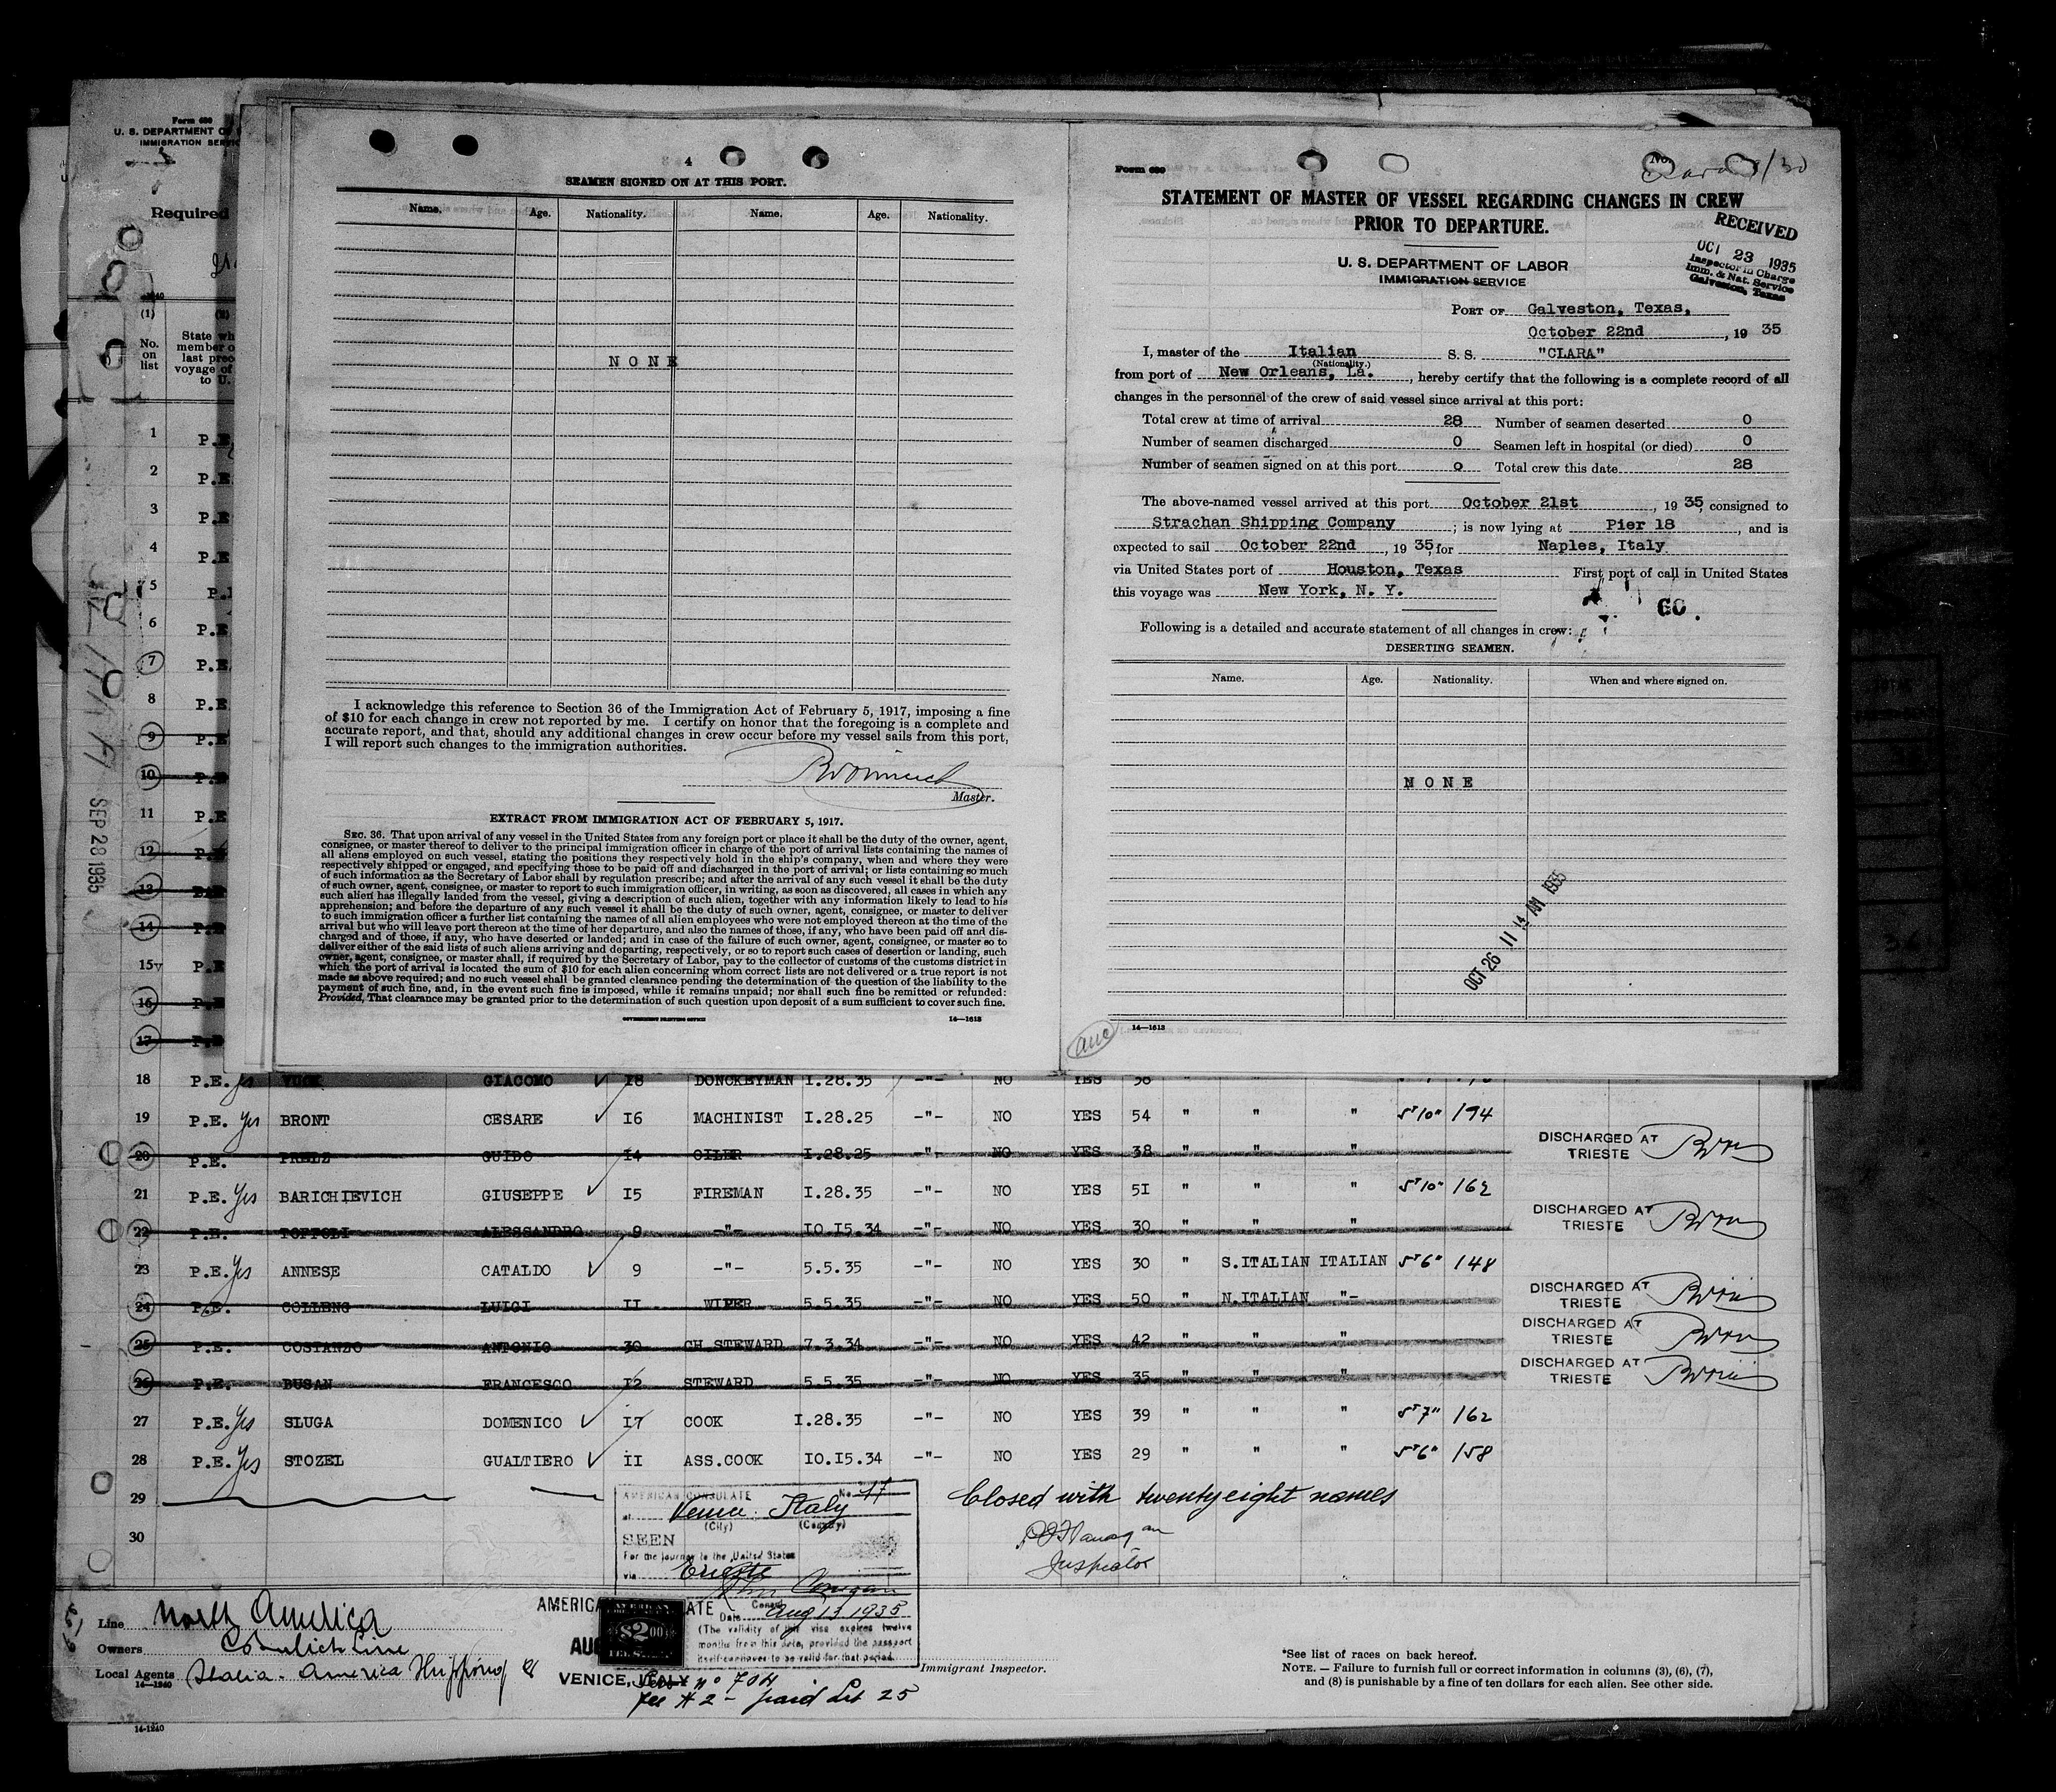 Form 680
U. S. DEPARTMENT O
IMMIGRATION SERVIC
Required
(1)
(2)
No.
on
list
State wh
member o
last prec
voyage of
to U.
1 P.E.
2 P.E.
3 P.E
4 P.E
5 P.E
6 P.E
7 P.E.
8 P.E.
9 P.E
10 P.E
11 P.E
12 P.E
13 P.E
14 P.E
15 P.E
16 P.E
17 P.E
SEP 28 1935
4
SEAMEN SIGNED ON AT THIS PORT.
Name. Age. Nationality. Name. Age. Nationality.
NONE
I acknowledge this reference to Section 36 of the Immigration Act of February 5, 1917, imposing a fine
of $10 for each change in crew not reported by me. I certify on honor that the foregoing is a complete and
accurate report, and that, should any additional changes in crew occur before my vessel sails from this port,
I will report such changes to the immigration authorities.
Master.
EXTRACT FROM IMMIGRATION ACT OF FEBRUARY 5, 1917.
SEC. 36. That upon arrival of any vessel in the United States from any foreign port or place it shall be the duty of the owner, agent,
consignee, or master thereof to deliver to the principal immigration officer in charge of the port of arrival lists containing the names of
all aliens employed on such vessel, stating the positions they respectively hold in the ship's company, when and where they were
respectively shipped or engaged, and specifying those to be paid off and discharged in the port of arrival; or lists containing so much
of such information as the Secretary of Labor shall by regulation prescribe; and after the arrival of any such vessel it shall be the duty
of such owner, agent, consignee, or master to report to such immigration officer, in writing, as soon as discovered, all cases in which any
such alien has illegally landed from the vessel, giving a description of such alien, together with any information likely to lead to his
apprehension; and before the departure of any such vessel it shall be the duty of such owner, agent, consignee, or master to deliver
to such immigration officer a further list containing the names of all alien employees who were not employed thereon at the time of the
arrival but who will leave port thereon at the time of her departure, and also the names of those, if any, who have been paid off and dis-
charged and of those, if any, who have deserted or landed; and in case of the failure of such owner, agent, consignee, or master so to
deliver either of the said lists of such aliens arriving and departing, respectively, or so to report such cases of desertion or landing, such
owner, agent, consignee, or master shall, if required by the Secretary of Labor, pay to the collector of customs of the customs district in
which the port of arrival is located the sum of $10 for each alien concerning whom correct lists are not delivered or a true report is not
made as above required; and no such vessel shall be granted clearance pending the determination of the question of the liability to the
payment of such fine, and, in the event such fine is imposed, while it remains unpaid; nor shall such fine be remitted or refunded:
Provided, That clearance may be granted prior to the determination of such question upon deposit of a sum sufficient to cover such fine.
GOVERNMENT PRINTING OFFICE 14—1613
Form 689 No.
STATEMENT OF MASTER OF VESSEL REGARDING CHANGES IN CREW
PRIOR TO DEPARTURE.
RECEIVED
OCT 23 1935
Inspector in Charge
Imm. & Nat. Service
Galveston, Texas
U. S. DEPARTMENT OF LABOR
IMMIGRATION SERVICE
PORT OF Galveston, Texas,
October 22nd, 19 35
I, master of the Italian S. S. "CLARA"
(Nationality.)
from port of New Orleans, La., hereby certify that the following is a complete record of all
changes in the personnel of the crew of said vessel since arrival at this port:
Total crew at time of arrival 28 Number of seamen deserted 0
Number of seamen discharged 0 Seamen left in hospital (or died) 0
Number of seamen signed on at this port 0 Total crew this date 28
The above-named vessel arrived at this port October 21st, 19 35, consigned to
Strachan Shipping Company; is now lying at Pier 18, and is
expected to sail October 22nd, 19 35, for Naples, Italy
via United States port of Houston, Texas First port of call in United States
this voyage was New York, N. Y.
GO.
Following is a detailed and accurate statement of all changes in crew:
DESERTING SEAMEN.
Name. Age. Nationality. When and where signed on.
NONE
OCT 26 11 14 AM 1935
14—1613
18 P.E. yes VUCK GIACOMO 18 DONCKEYMAN I.28.35 -"- NO YES 38 " " "
19 P.E. Yes BRONT CESARE I6 MACHINIST I.28.25 -"- NO YES 54 " " " 5'10" 194
20 P.E. PRELZ GUIDO I4 OILER I.28.25 -"- NO YES 38 " " " DISCHARGED AT TRIESTE
21 P.E. Yes BARICHIEVICH GIUSEPPE I5 FIREMAN I.28.35 -"- NO YES 5I " " " 5'10" 162
22 P.E. TOFFOLI ALESSANDRO 9 -"- IO.I5.34 -"- NO YES 30 " " " DISCHARGED AT TRIESTE
23 P.E. Yes ANNESE CATALDO 9 -"- 5.5.35 -"- NO YES 30 " S.ITALIAN ITALIAN 5'6" 148
24 P.E. COLLENG LUIGI II WIPER 5.5.35 -"- NO YES 50 " N.ITALIAN "- DISCHARGED AT TRIESTE
25 P.E. COSTANZO ANTONIO 30 CH STEWARD 7.3.34 -"- NO YES 42 " " " DISCHARGED AT TRIESTE
26 P.E. BUSAN FRANCESCO I2 STEWARD 5.5.35 -"- NO YES 35 " " " DISCHARGED AT TRIESTE
27 P.E. Yes SLUGA DOMENICO I7 COOK I.28.35 -"- NO YES 39 " " " 5'7" 162
28 P.E. Yes STOZEL GUALTIERO II ASS.COOK IO.I5.34 -"- NO YES 29 " " " 5'6" 158
29
30
Closed with twentyeight names
Inspector
AMERICAN CONSULATE No. 47
at Venice Italy
(City) (Country)
SEEN
For the journey to the United States
via Trieste
Consul
Date Aug 13 1935
(The validity of this visa expires twelve
months from this date, provided the passport
itself continues to be valid for that period.
$2.00
VENICE,
fee # 2 - paid Lit 25
Immigrant Inspector.
Line North America
Owners Cosulich Line
Local Agents Italia-America Shipping
14—1240
*See list of races on back hereof.
NOTE. — Failure to furnish full or correct information in columns (3), (6), (7),
and (8) is punishable by a fine of ten dollars for each alien. See other side.
14-1240